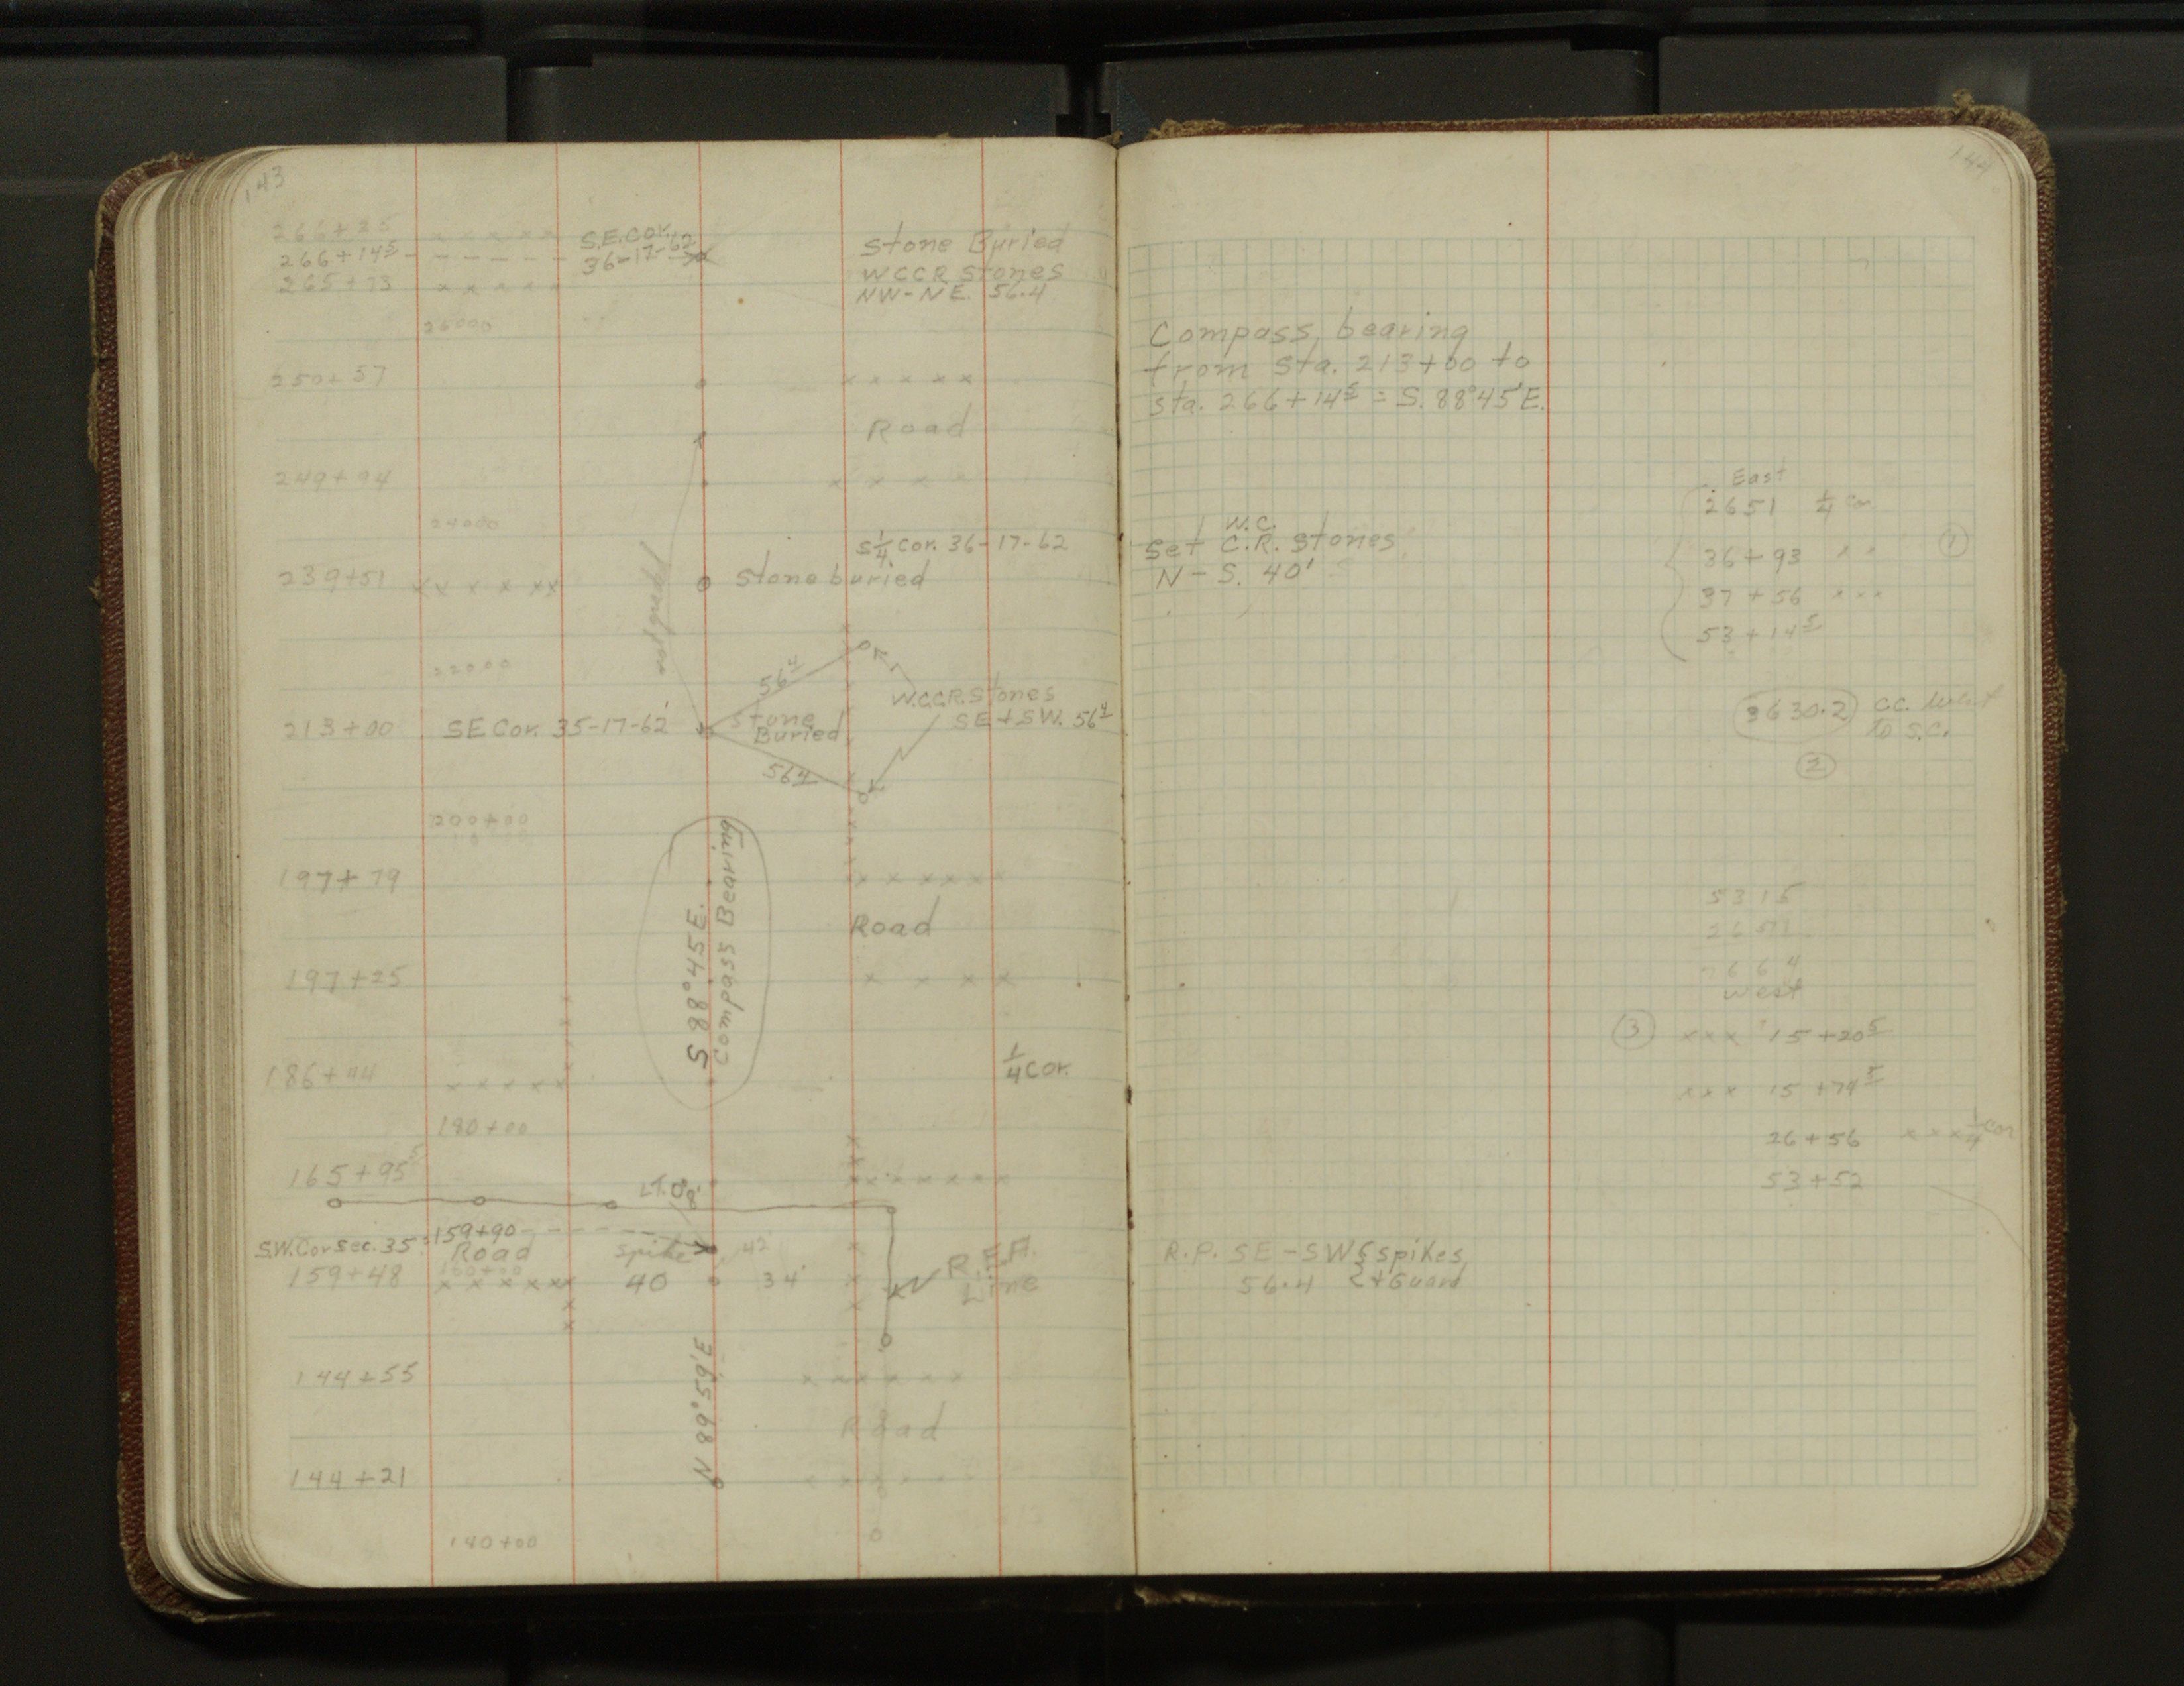 143
266+14⁵ S.E. Cor. 36-17-62
Stone Buried
WCCR Stones
NW-NE. 56.4
265+73
26000
250+57
Road
249+94
24000
S¼ Cor. 36-17-62
239+51 Stone buried
22000
56⁴
W.C.C.R. Stones
SE+SW. 56⁴
213+00 SE Cor. 35-17-62 Stone Buried
56⁴
200+00
197+79
Road
197+25
S 88°45'E.
Compass Bearing
186+44 ¼ Cor.
180+00
165+95⁵
LT. 0°8'
S.W. Cor Sec. 35 = 159+90
Road Spike 42
159+48 160+00 40 34
R.E.A. Line
N 89°59'E
144+55
Road
144+21
140+00
144
Compass bearing
from Sta. 213+00 to
Sta. 266+14⁵ = S. 88°45'E.
East
2651 ¼ Cor
W.C.
Set C.R. Stones
N-S. 40'
36+93
①
37+56 xxx
53+14⁵
3630.2 C.C. West
to S.C.
②
5315
2651
2664
West
③ xxx 15+20⁵
xxx 15+74⁵
26+56 xxx ¼ Cor
53+52
R.P. SE-SW spikes
56.4 + Guard